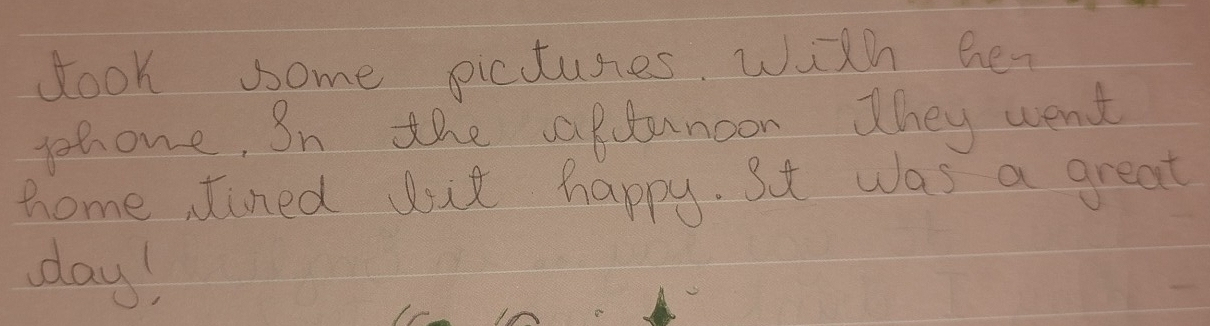 took some pictures. With her
phone. In the afternoon they went
home tired bit happy. It was a great
day!